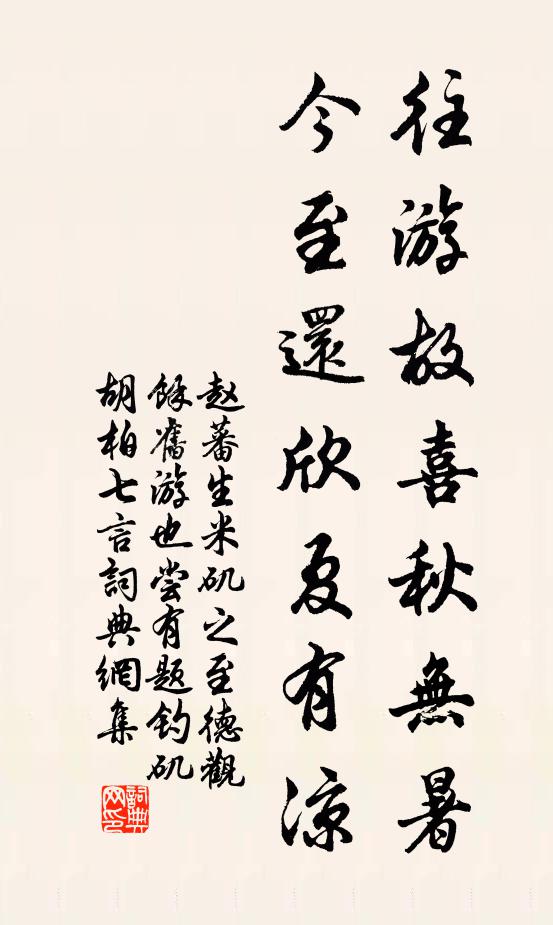 往游故喜秋無暑
今至還欣夏有涼
赵蕃生米矶之至德觀
餘舊游也尝有题钓矶
胡柏七言詞典網集
詞典網印